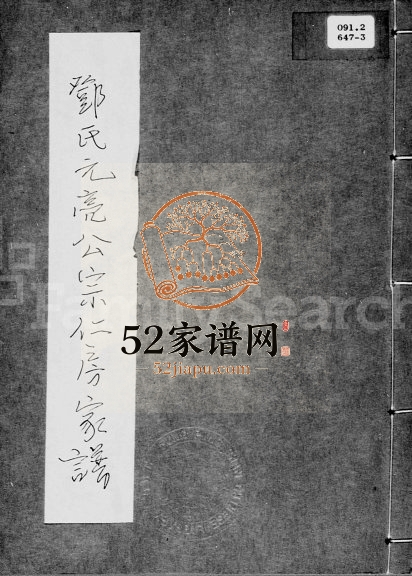 091.2
647-3
鄧氏元亮公宗仁房家譜
FamilySearch
52家谱网
52jiapu.com